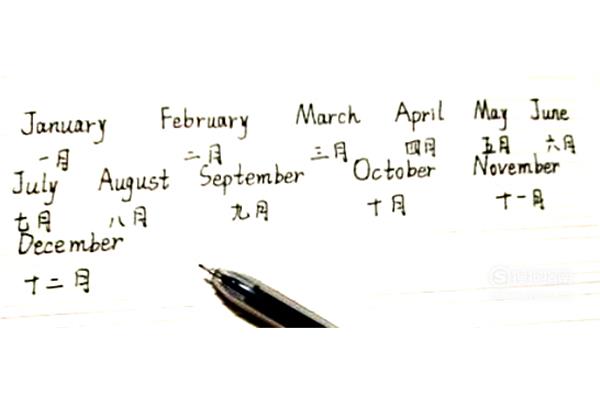 January February March April May June
一月 二月 三月 四月 五月 六月
July August September October November
七月 八月 九月 十月 十一月
December
十二月